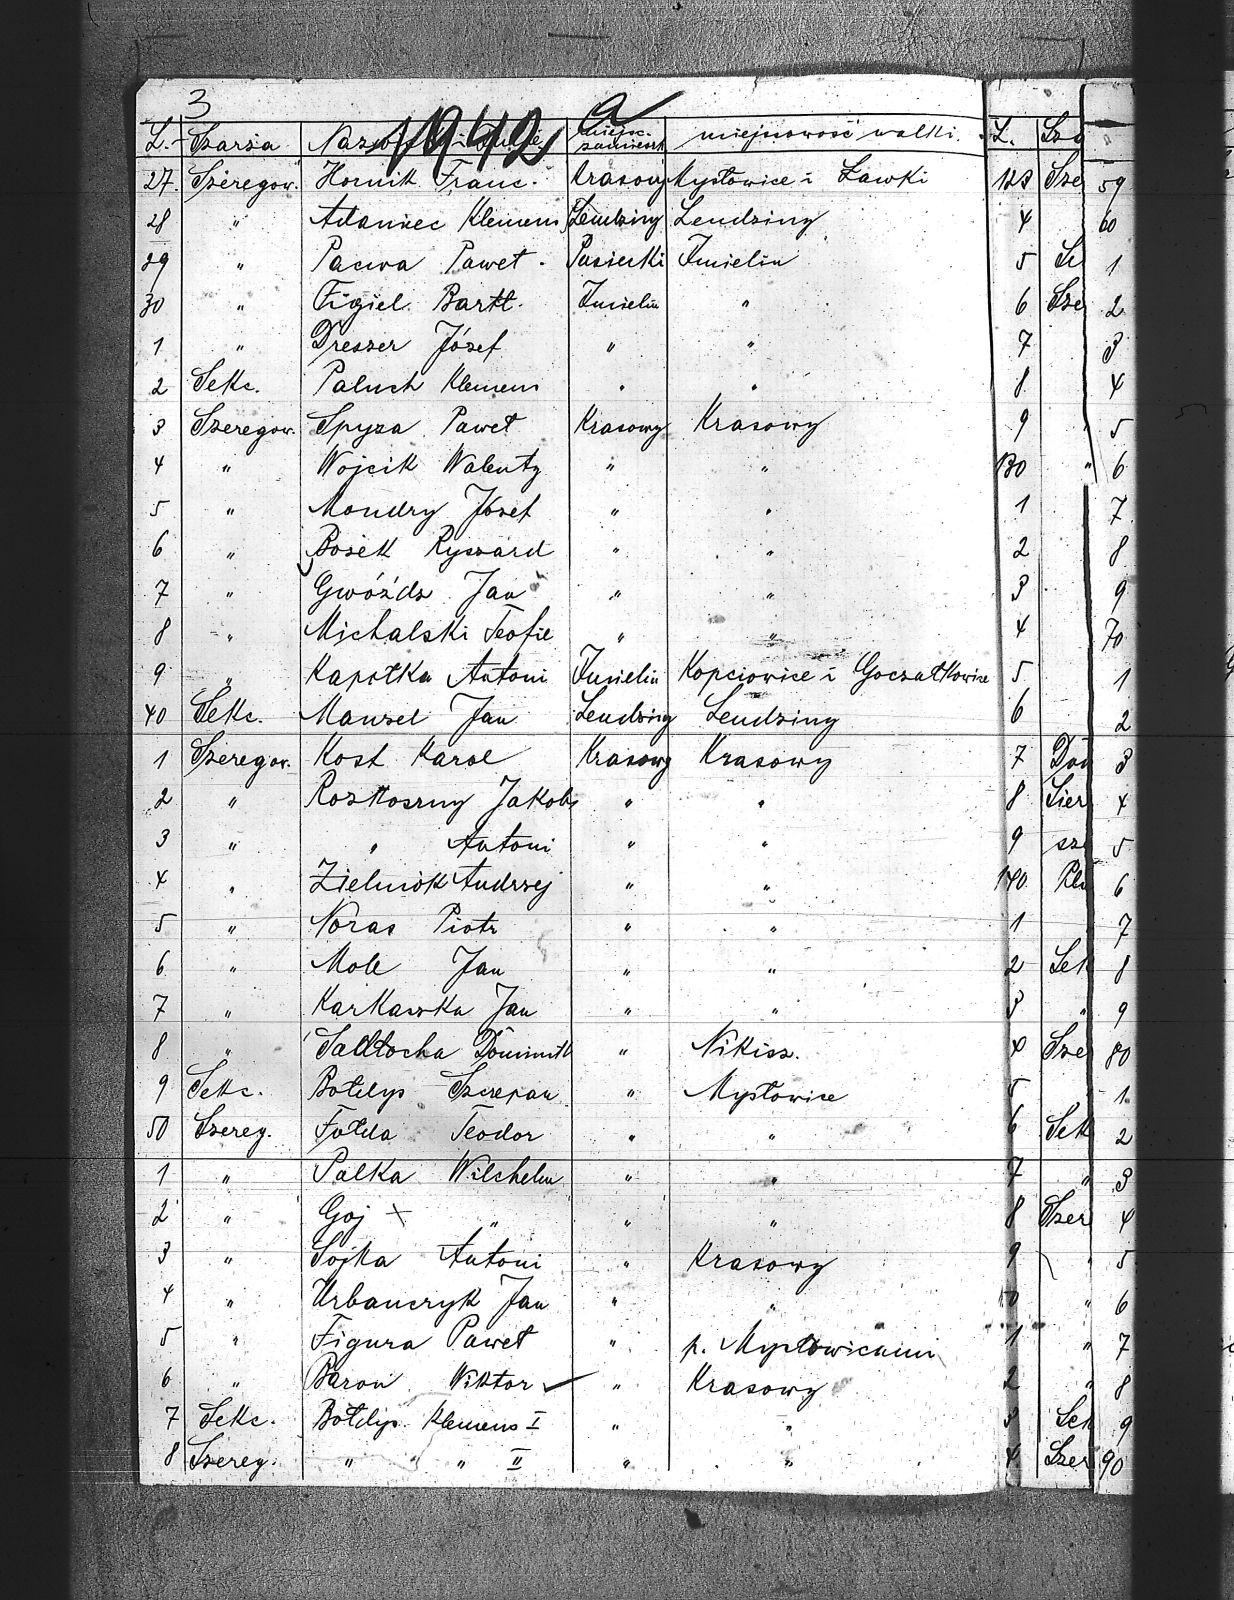 3
1942 a
L. Szarża Nazwisko i Imię miejsc. zamieszk miejscowość walki. L. Sza
27. Szeregow. Hornik Franc. Krasowy Mysłowice i Ławki 123 Sze 59
28 " Adamiec Klemens Lendziny Lendziny 4 60
29 " Pacwa Paweł. Pasieczki Imielin 5 1
30 " Figiel Bartł. Imielin " 6 Sze 2
1 " Dreszer Józef " " 7 3
2 Sekc. Paluch Klemens " " 8 4
3 Szeregow. Spyra Paweł Krasowy Krasowy 9 5
4 " Wojcik Walenty " " 130 " 6
5 " Mondry Józef " " 1 7
6 " Bosek Ryszard " " 2 8
7 " Gwóźdz Jan " " 3 9
8 " Michalski Teofil " " 4 70
9 " Kapołka Antoni Imielin Kopciowice i Goczałkowice 5 1
40 Sekc. Manzel Jan Lendziny Lendziny 6 2
1 Szeregow. Kost Karol Krasowy Krasowy 7 3
2 " Rozkoszny Jakob " " 8 Sier 4
3 " " Antoni " " 9 sze 5
4 " Zielniok Andrzej " " 140 6
5 " Noras Piotr " " 1 7
6 " Mole Jan " " 2 Sek 8
7 " Karkawka Jan " " 3 " 9
8 " Sadłocha Dominik " Nikisz. 4 Szer 80
9 Sekc. Bołdys Szczepan " Mysłowice 5 1
50 Szereg. Fołda Teodor " " 6 Sek 2
1 " Palka Wilchelm " " 7 " 3
2 " Goj × " " " 8 Szer 4
3 " Sojka Antoni " Krasowy 9 " 5
4 " Urbanczyk Jan " " 50 " 6
5 " Figura Paweł " p. Mysłowicami 1 " 7
6 " Baron Wiktor " Krasowy 2 " 8
7 Sekc. Bołdys Klemens I " " 3 Sek 9
8 Szereg. " " " II " " 4 Szer 90